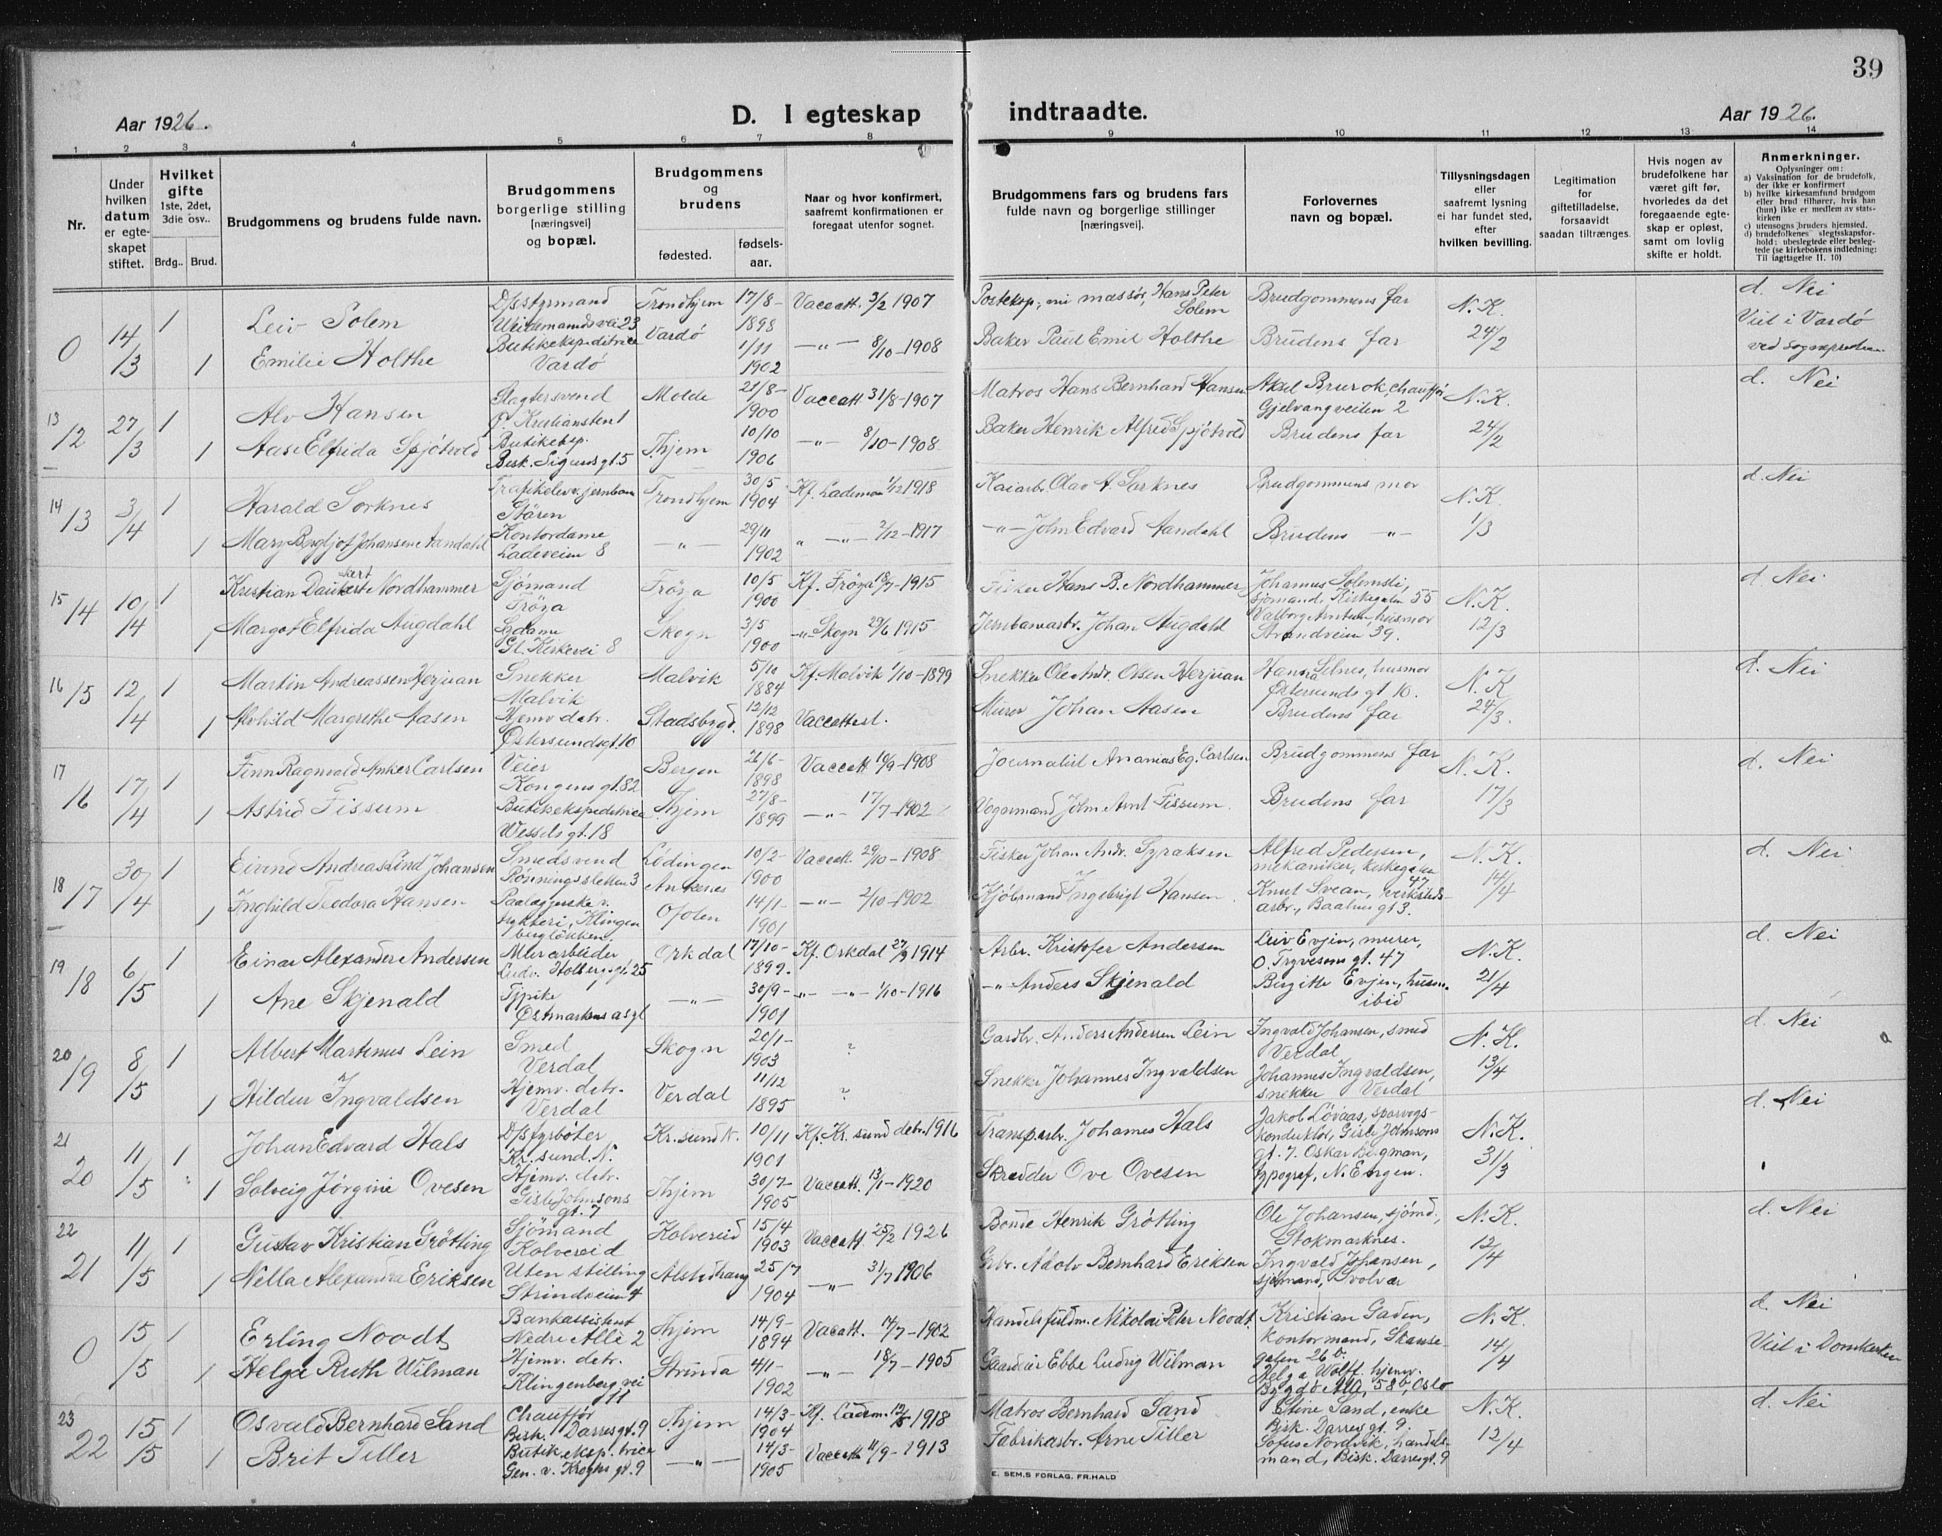 39
Aar 1926.
D. I egteskap indtraadte.
Aar 1926.
1 2 3 4 5 6 7 8 9 10 11 12 13 14
Nr.
Under hvilken datum er egteskapet stiftet.
Hvilket gifte 1ste, 2det, 3die osv..
Brdg.. Brud.
Brudgommens og brudens fulde navn.
Brudgommens borgerlige stilling [næringsvei] og bopæl.
Brudgommens og brudens
fødested.
fødsels- aar.
Naar og hvor konfirmert, saafremt konfirmationen er foregaat utenfor sognet.
Brudgommens fars og brudens fars fulde navn og borgerlige stillinger [næringsvei].
Forlovernes navn og bopæl.
Tillysningsdagen eller saafremt lysning ei har fundet sted, efter hvilken bevilling.
Legitimation for giftetilladelse, forsaavidt saadan tiltrænges.
Hvis nogen av brudefolkene har været gift før, hvorledes da det foregaaende egteskap er opløst, samt om lovlig skifte er holdt.
Anmerkninger.
Oplysninger om:
a) Vaksination for de brudefolk, der ikke er konfirmert
b) hvilke kirkesamfund brudgom eller brud tilhører, hvis han (hun) ikke er medlem av statskirken
c) utensogns bruders hjemsted.
d) brudefolkenes slegtsskapsforhold: ubeslegtede eller beslegtede (se kirkebokens indledning: Til iagttagelse II. 10)
0 14/3 1 Leiv Solem D/sstyrmand Weidemandsvei 23 Trondhjem 17/8-1898 Vaccatt. 3/2 1907 Hans Peter Solem Brudgommens far N.K. 24/2 d. Nei
1 Emilie Holthe Butikekspeditrice Vardø Vardø 1/11 1902 -"- 8/10-1908 Baker Paul Emil Holthe Brudens far Viet i Vardø
13 12 27/3 1 Alv Hansen Slagtersvend Ø. Kristianstent Molde 21/8-1900 Vaccatt 31/8-1907 Matros Hans Bernhard Hansen Aksel Brurok, chauffør Gjelvangveiten 2 N.K. 24/2 d. Nei
1 Aase Elfrida Spjøtvold Butikeksp. Bisk. Sigurds gt. 5 Thjem 10/10 1906 -"- 8/10-1908 Baker Henrik Alfred Spjøtvold Brudens far
14 13 3/4 1 Harald Sorknes Støren Trondhjem 30/5 1904 Kf. Lademoen 1/12 1918 Kaiarb. Olav A. Sorknes Brudgommens mor N.K. 1/3 d. Nei
1 Mary Bergljot Johansen Aandahl Kontordame Ladeveien 8 -"- 29/11 1902 " -"- 2/12-1917 -"- John Edvard Aandahl Brudens -"-
15 14 10/4 1 Kristian Nordhammer Sjømand Frøya Frøya 10/5 1900 Kf. Frøya 18/7-1915 Fisker Hans B. Nordhammer sjømand, Kirkegaten 55 N.K. 12/3 d. Nei
1 Margot Elfrida Augdahl Sydame Gl. Kirkevei 8 Skogn 3/5 1900 -"- Skogn 29/6 1915 Jernbanearb. Johan Augdahl husmor Strandveien 39.
16 15 12/4 1 Martin Andreassen Herjuan Snekker Malvik Malvik 5/10 1884 Kf. Malvik 1/10-1899 Snekker Ole Andr. Olsen Herjuan Hanna Selnes, husmor Østersunds gt. 10. N.K. 24/3. d. Nei
1 Alvhild Margrethe Aasen Hjemv. detr. Østersundsgt. 10 Stadsbygd. 12/12 1898 Vaccattest. Murer Johan Aasen Brudens far
17 16 17/4 1 Finn Ragnvald Anker Carlsen Veier Kongens gt. 82 Bergen 21/6-1898 Vaccatt 19/9-1908 Journalist Ananias Eg. Carlsen Brudgommens far N.K. 17/3 d. Nei
1 Astrid Fissum Butikekspeditrice Wessels gt. 18 Thjem 27/8-1899 -"- 17/7-1902 Vognmand John Arnt Fissum. Brudens far
18 17 30/4 1 Eivind Andreas Lind Johansen Smedsvend Rønningsletten 3 Lødingen 10/2-1900 Vaccatt. 29/10-1908 Fisker Johan Andr. Syraksen Alfred Pedersen, mekaniker, Kirkegaten 47 N.K. 14/4 d. Nei
1 Inghild Teodora Hansen Paalæggerske v. trykkeri, Klingenbergløkken Ankenes Ofoten 14/1-1901 -"- 2/10-1902 Kjøbmand Ingebrigt Hansen Knut Svean, verkstedsarb., Baahus gt 3.
19 18 6/5 1 Einar Alexander Andersen Murarbeider Ludv. Holbergs gt. 25 Orkdal 17/10-1899. Kf. Orkdal 27/9 1914 Arbr. Kristofer Andersen Leiv Evjen, murer, O. Trygvesons gt. 47 N.K. 21/4 d. Nei
1 Ane Skjenald Tjpike Østmarkens asyl -"- 30/9-1901 -"- -"- 1/10-1916 -"- Anders Skjenald Birgitte Evjen, husm. ibid
20 19 8/5 1 Albert Martinus Lein Smed Verdal Skogn 20/1-1903 ? Gardbr. Anders Andersen Lein Ingvald Johansen, smed Verdal N.K. 13/4 d. Nei
1 Hildur Ingvaldsen Hjemv. detr. Verdal Verdal 11/12 1895 ? Snekker Johannes Ingvaldsen Johannes Ingvaldsen, snekker Verdal
21 20 11/5 1 Johan Edvard Hals D/sfyrbøter Kr. sund N. Kr. sund N. 10/11 1901 Kf. Kr. sund detr. 1916 Transparbr. Johannes Hals Jakob Løvaas, sporvogskonduktør, Gisle Johnsons gt. 7. N.K. 31/3 d. Nei
1 Solveig Jørgine Ovesen Hjemv. detr. Gisle Johnsons gt. 7 Thjem 30/7-1905 Vaccatt 13/1-1920 Skredder Ove Ovesen Oskar Bergman, typograf, N. Engen.
22 21 11/5 1 Gustav Kristian Grøtting Sjømand Kolvereid Kolvereid 15/4 1903 Vaccatt 25/2 1926 Bonde Henrik Grøtting Ole Johansen, sjømd, Stokmarknes. N.K. 12/4 d. Nei
1 Nella Alexandra Eriksen Uten stilling Strindveien 4 Alstahaug 25/7 1904 -"- 31/7 1906 Grbr. Adolv Bernhard Eriksen Ingvald Johansen, sjømand, Svolvær
0 15/5 1 Erling Noodt Bankassistent Nedre Alle 2 Thjem 14/9-1894 Vacatt. 14/7-1902 Handelsfuldm. Nikolai Peter Noodt. Kristian Gaden, kontormand, Skansegaten 26 b. N.K. 14/4 d. Nei
1 Helga Ruth Wilman Hjemv. detr. Klingenberg vei 11 Strinda 4/1-1902 -"- 18/7-1905 Gaardeier Ebbe Ludvig Wilman Helga Wolff. hjemv. Bygdø Alle, 58b, Oslo Viet i Domkirken
23 22 15/5 1 Osvald Bernhard Sand Chauffør Bisk. Darres gt. 9 Thjem 14/3-1904 Kf. Ladem. 1918 Matros Bernhard Sand Stine Sand, enke Bisk. Darres gt. 9. N.K. 12/4 d. Nei
1 Brit Tiller Butikeksp. trice Gen. v. Kroghs gt. 9 -"- 14/3-1905 Vaccatt 11/9-1913 Fabrikarbr. Arne Tiller Sofus Nordvik, handelsmand, Bisk. Darres gt. 9
E. SEM.S FORLAG, FR.HALD